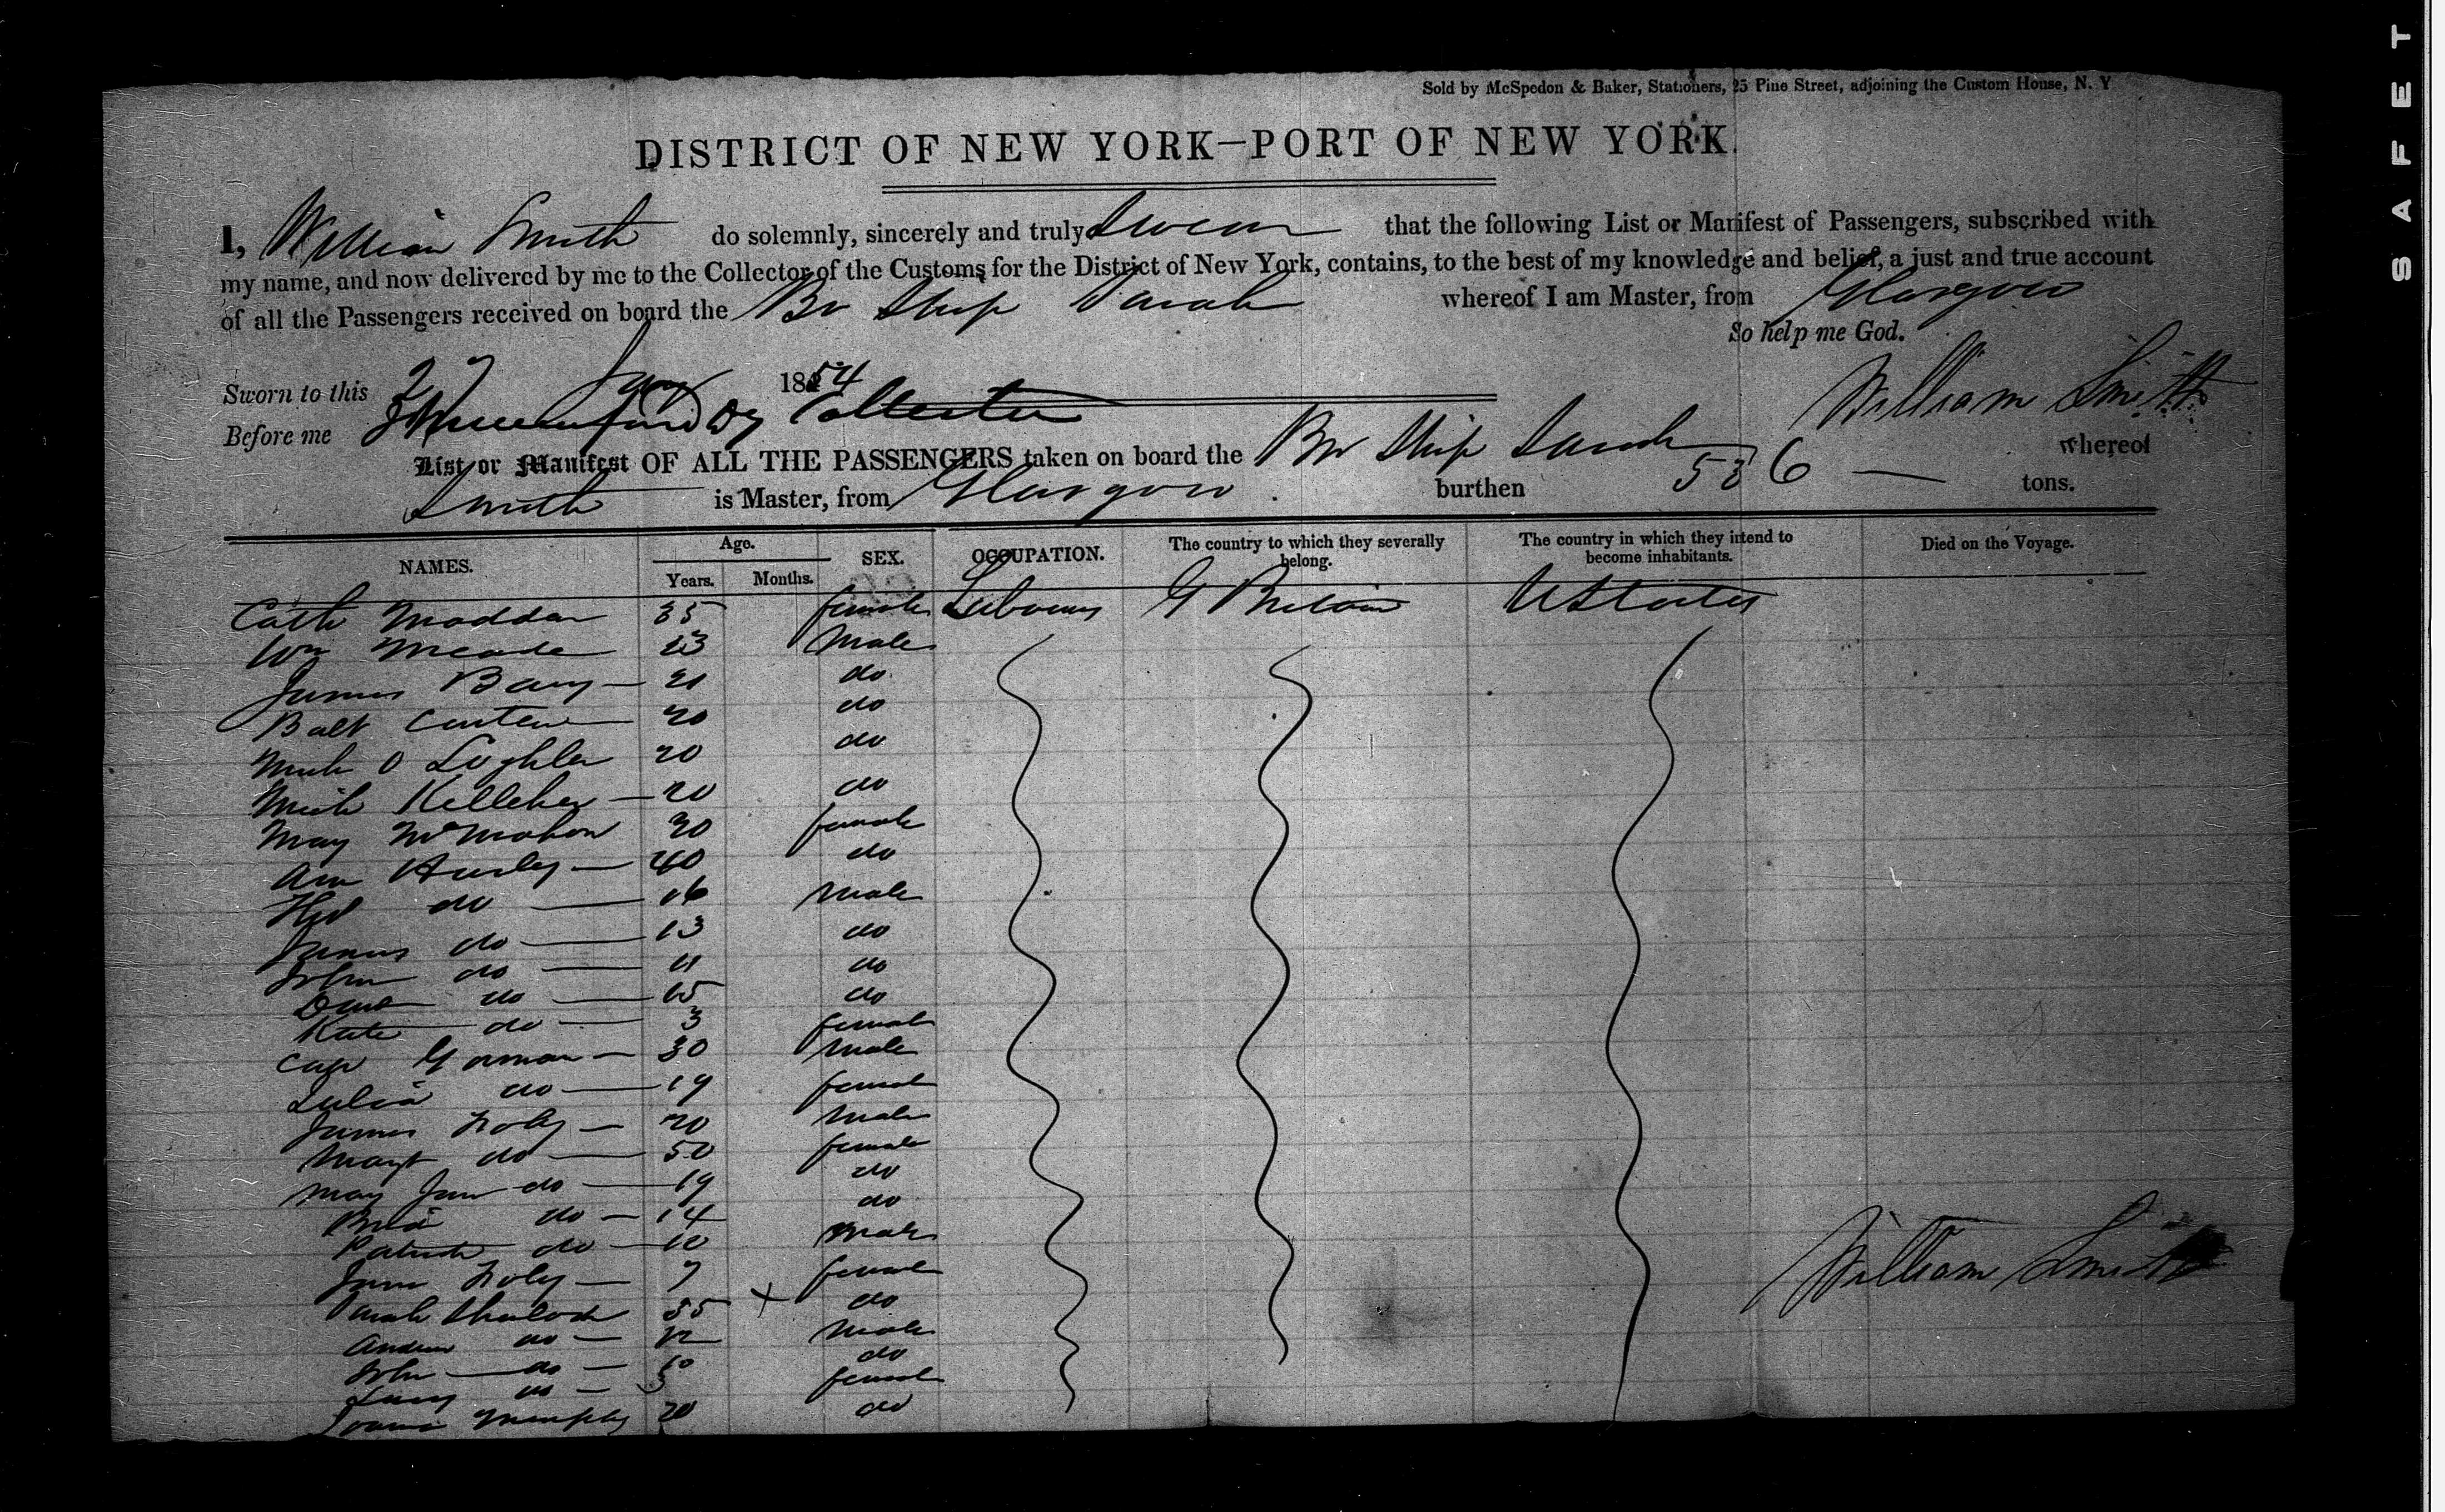 SAFET
Sold by McSpedon & Baker, Stationers, 25 Pine Street, adjoining the Custom House, N. Y
DISTRICT OF NEW YORK—PORT OF NEW YORK.
I, William Smith do solemnly, sincerely and truly Swear that the following List or Manifest of Passengers, subscribed with
my name, and now delivered by me to the Collector of the Customs for the District of New York, contains, to the best of my knowledge and belief, a just and true account
of all the Passengers received on board the Br Ship Sarah whereof I am Master, from Glasgow
So help me God.
Sworn to this 27 Jany 1854
William Smith
Before me Dy Collector
List or Manifest OF ALL THE PASSENGERS taken on board the Br Ship Sarah whereof
Smith is Master, from Glasgow. burthen 536 — tons.
NAMES. Age. Years. Months. SEX. OCCUPATION. The country to which they severally belong. The country in which they intend to become inhabitants. Died on the Voyage.
Cath Madden 35 female Labourers G Britain U States
Wm Meade 23 Male
James Barry — 21 do
Balt 20 do
Mich O Loghlen 20 do
Mich Kelleher — 20 do
Mary McMahon 30 female
Ann Hurley — 40 do
do — 16 Male
James do — 13 do
John do — 11 do
do — 15 do
Kate do — 3 female
Gorman — 30 Male
Julia do — 19 female
James Foley — 20 Male
Margt do — 50 female
Mary Jane do — 19 do
do — 14 do
Patrick do — 10 Male
Jane Foley — 7 female
Sarah 35 x do
Andrew do — 12 Male
John — do — 10 do
do — female
Joanna Murphy 20 do
William Smith